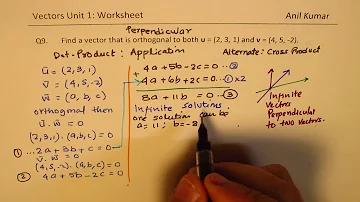 Vectors Unit 1: Worksheet
Anil Kumar
Perpendicular
Q9. Find a vector that is orthogonal to both u = (2, 3, 1) and v = (4, 5, -2).
Dot-Product: Application
Alternate: Cross Product
ū = (2,3,1)
v̄ = (4,5,-2)
w̄ = (a,b,c)
orthogonal then
ū · w̄ = 0
(2,3,1) · (a,b,c) = 0
① ... 2a + 3b + c = 0
v̄ · w̄ = 0
(4,5,-2) · (a,b,c) = 0
② 4a + 5b - 2c = 0
+ 4a + 5b - 2c = 0 ... ②
4a + 6b + 2c = 0 ... ① × 2
8a + 11b = 0 ... ③
Infinite Solutions.
one solution can be
a = 11 ; b = -8
Infinite
Vectors
Perpendicular
to two vectors.